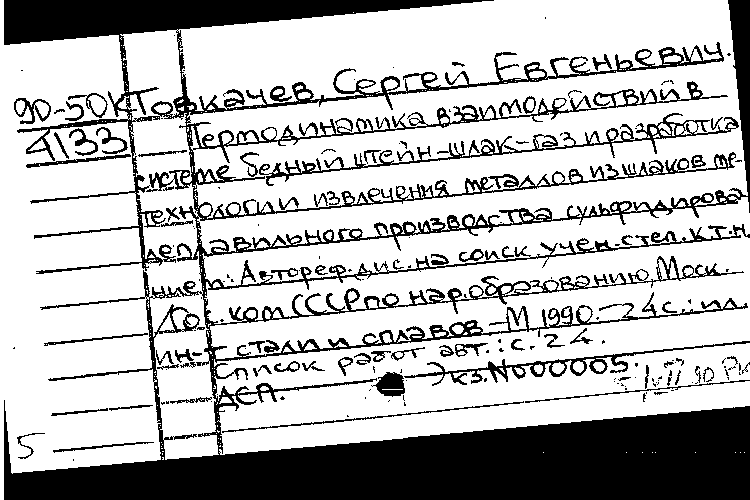 90-50К Товкачев, Сергей Евгеньевич.
4133 Термодинамика взаимодействий в
системе бедный штейн-шлак-газ и разработка
технологии извлечения металлов из шлаков ме-
деплавильного производства сульфидирова-
нием: Автореф. дис. на соиск. учен. степ. к.т.н.
Гос. ком СССР по нар. образованию, Моск.
ин-т стали и сплавов – М 1990. – 24 с.: ил.
Список работ авт.: с. 24.
ДСП. Экз. N000005.
VII 90
5